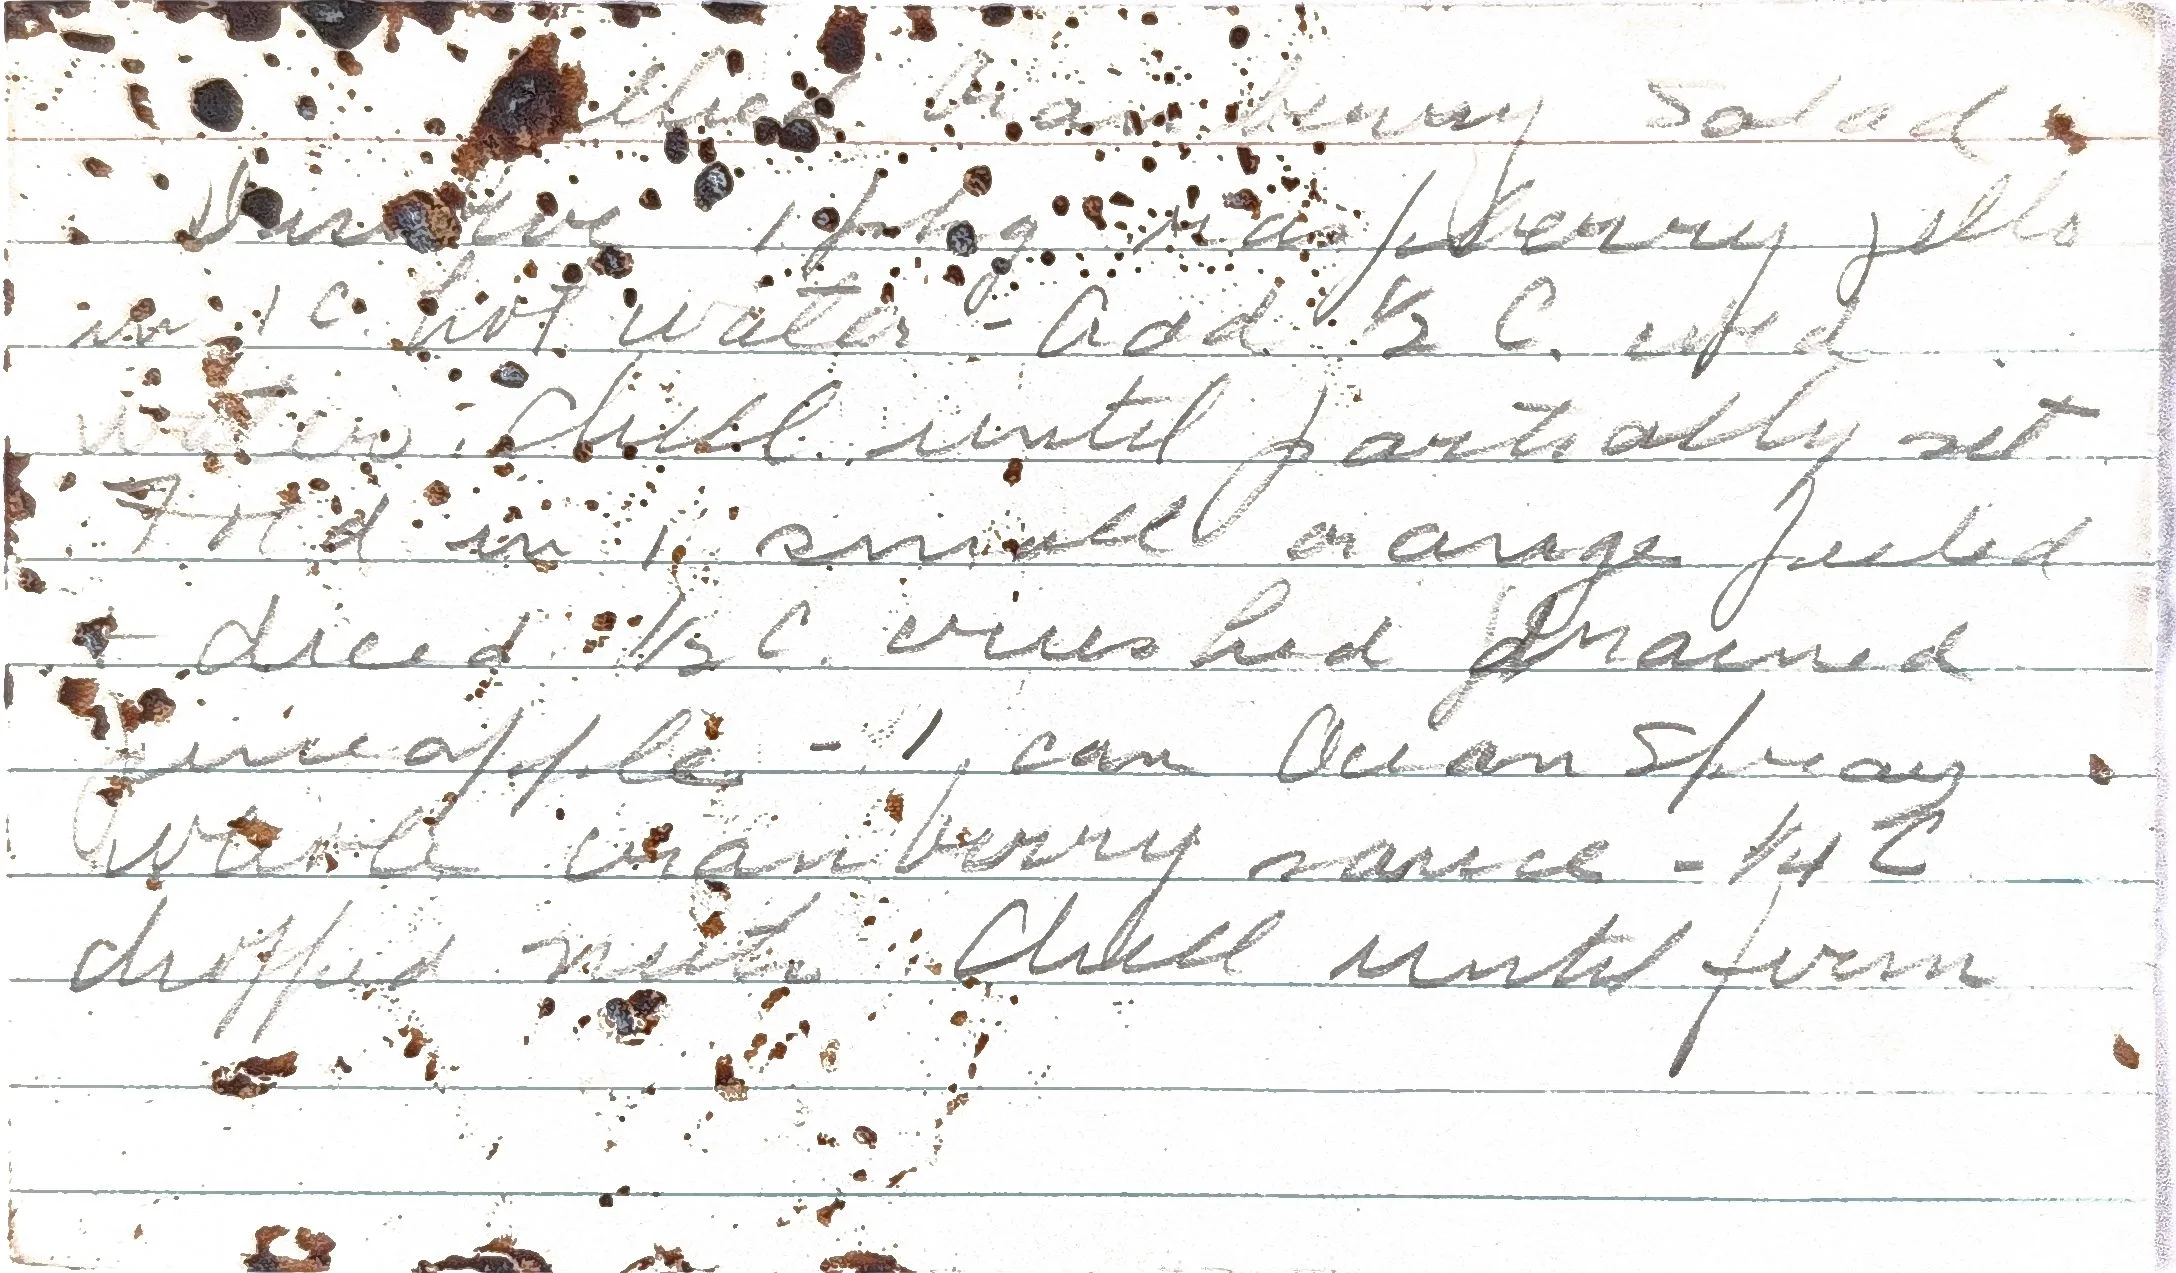 Jellied Cranberry Salad
Dissolve 1 pkg raspberry jello
in 1 C. hot water - add 1/2 C.
water. Chill until partially set
Fold in 1 small orange peeled
+ diced 1/2 C. crushed drained
pineapple - 1 can Ocean Spray
whole cranberry sauce - 1/4 C
chopped nuts. Chill until firm